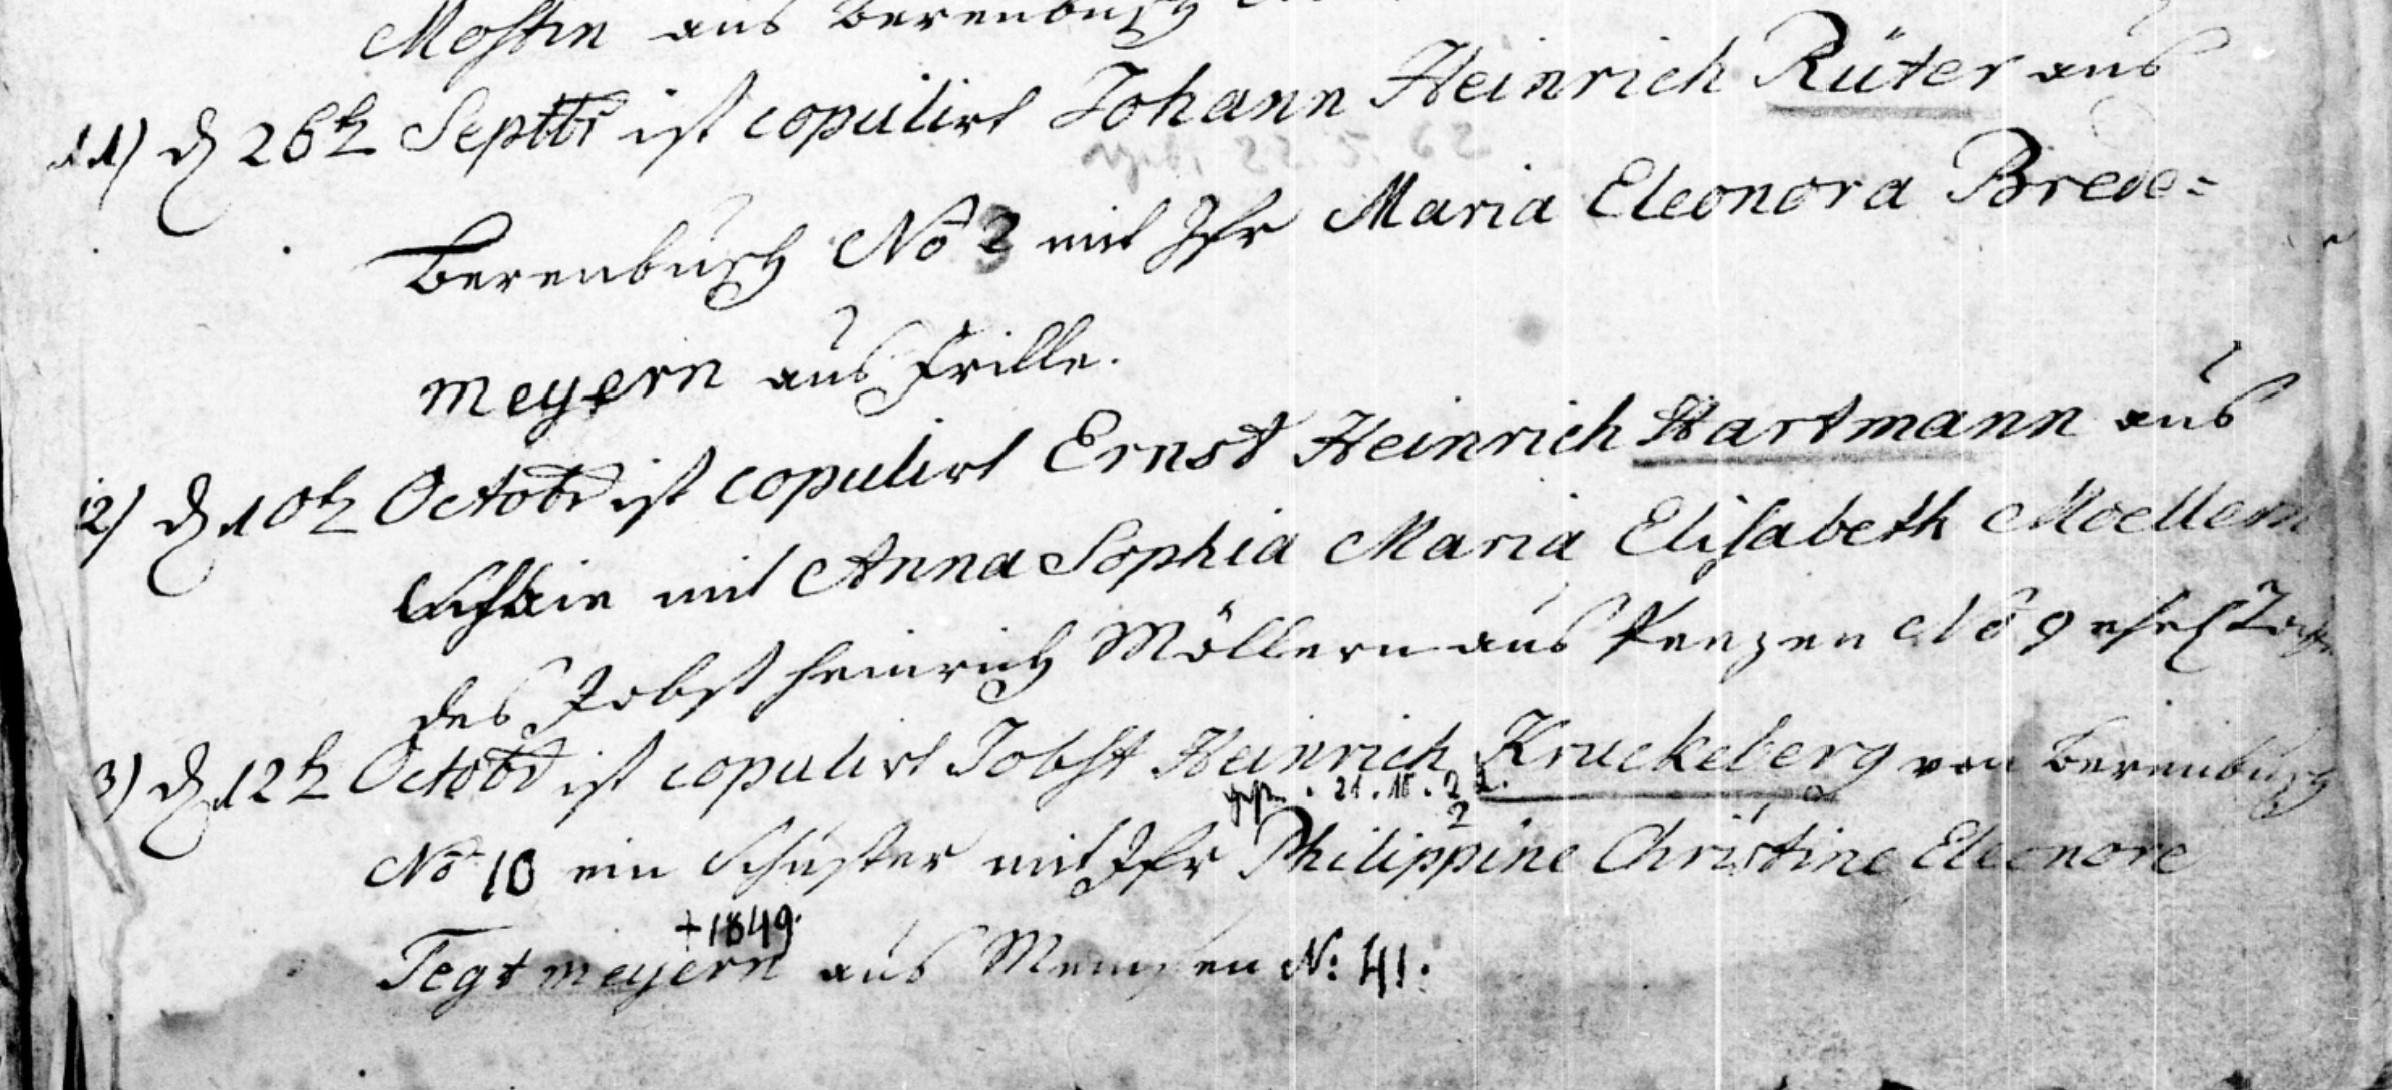 Mostin aus Berenbusch
11) d 26t Septbr ist copulirt Johann Heinrich Rüter aus
Berenbusch No 2 mit Jfr Maria Eleonora Brede=
meyern aus Frille.
12) d 10t Octobr ist copulirt Ernst Heinrich Hartmann aus
mit Anna Sophia Maria Elisabeth Moellern
des Jobst Heinrich Möllern aus Peezen No 9 ehel Tochter
3) d 12t Octobr ist copulirt Jobst Heinrich Kruckeberg von Berenbusch
No 10 ein Schuster mit Jfr Philippine Christine Eleonore
+1849.
Tegtmeyern aus Meinsen N: 41.